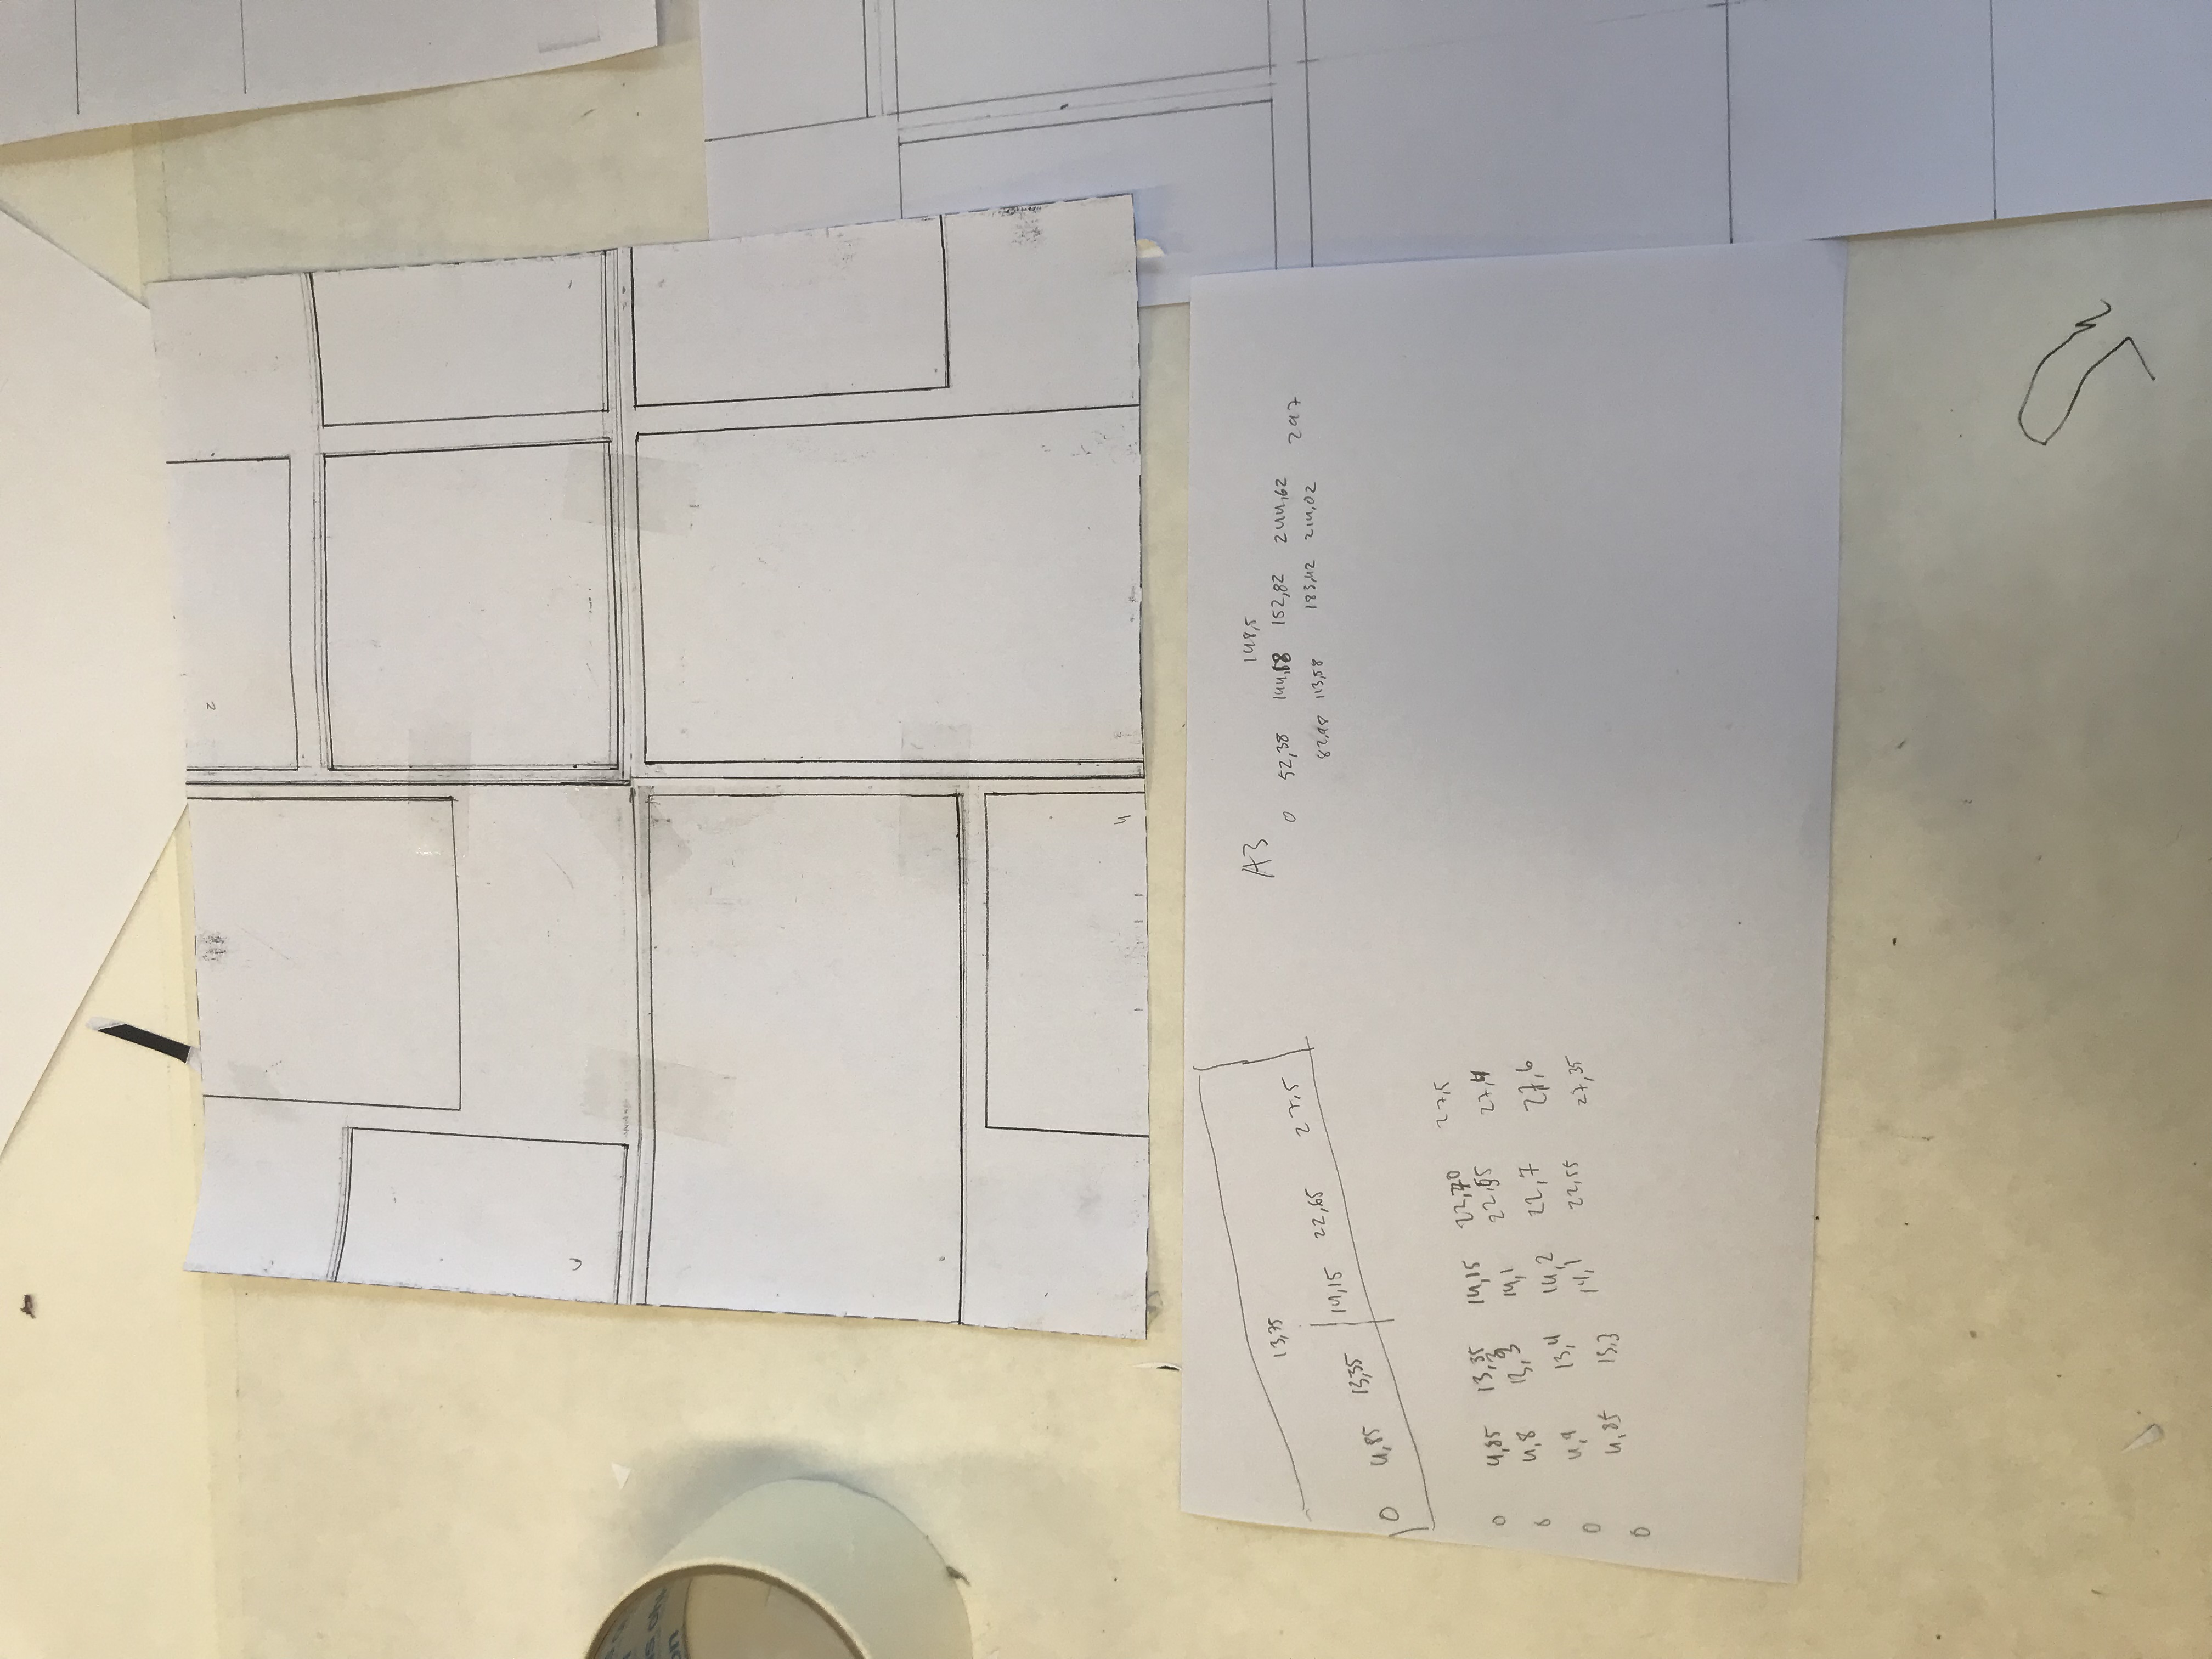 2
4
13,75
0 4,85 13,35 14,15 22,65 27,5
0 4,85 13,35 14,15 22,70 27,5
0 4,8 13,3 14,1 22,55 27,4
0 4,9 13,4 14,2 22,7 27,6
0 4,85 13,3 14,1 22,55 27,35
A3
148,5
0 52,38 144,18 152,82 244,62 297
82,98 113,58 183,42 214,02